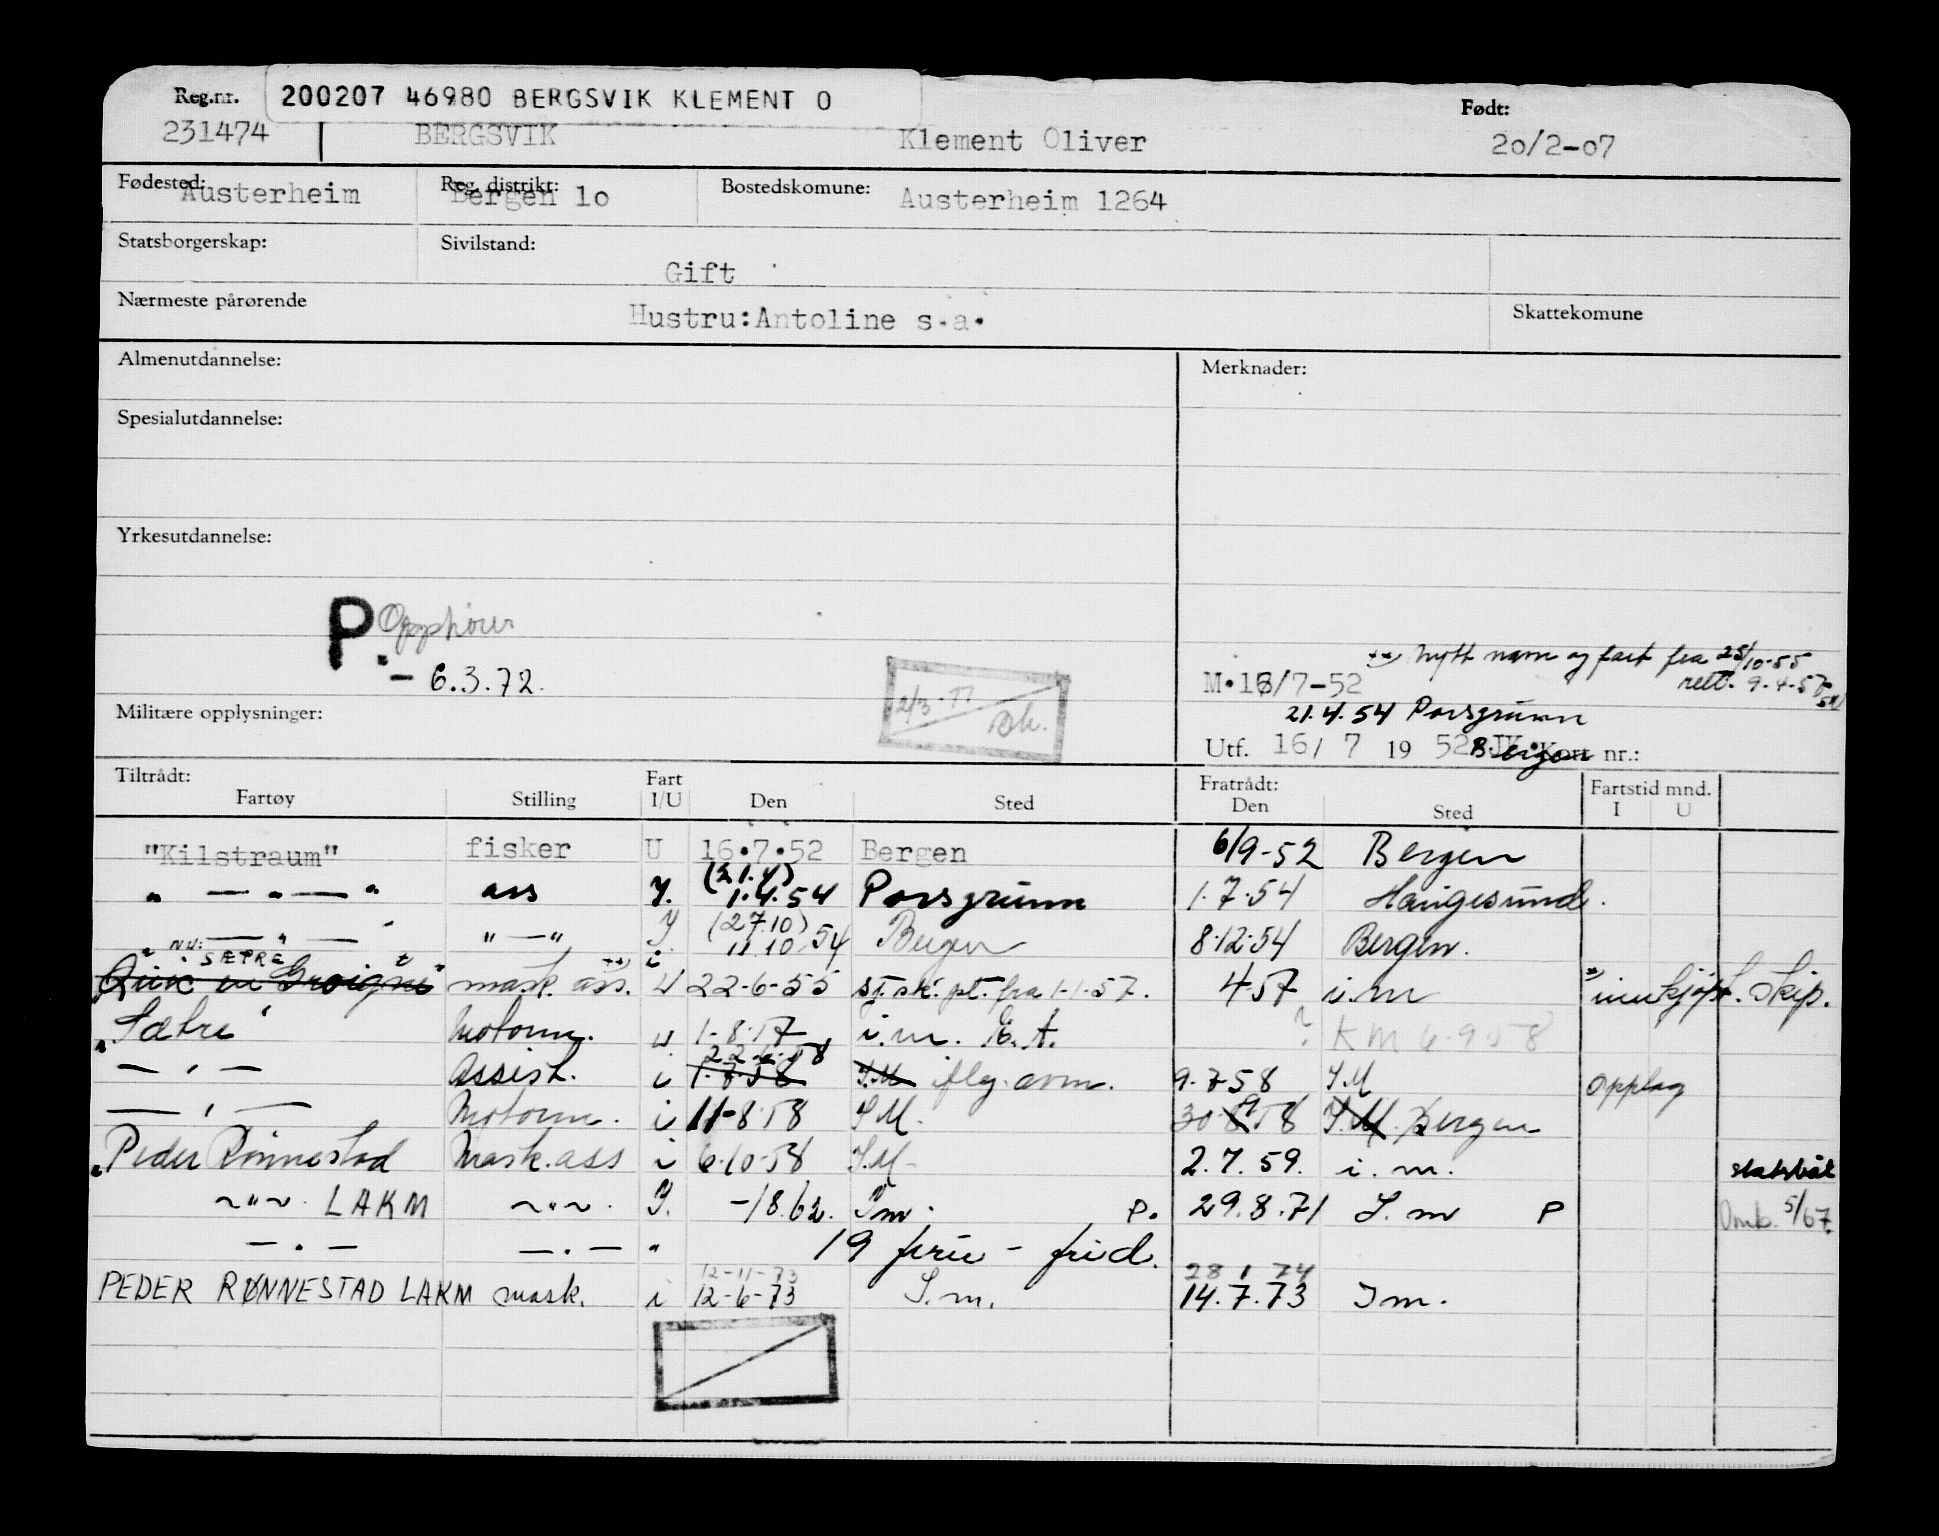 Reg.nr. 200207 46980 BERGSVIK KLEMENT O Født:
231474 BERGSVIK Klement Oliver 20/2-07
Fødested: Austerheim Reg. distrikt: Bergen 1o Bostedskomune: Austerheim 1264
Statsborgerskap: Sivilstand:
Gift
Nærmeste pårørende Hustru:Antoline s.a. Skattekomune
Almenutdannelse: Merknader:
Spesialutdannelse:
Yrkesutdannelse:
P. Opphører
- 6.3.72.
**) Nytt navn og fart fra 25/10-55
rett. 9.4.57
2/3-77
M.16/7-52
Militære opplysninger:
21.4.54 Porsgrunn
Utf. 16/ 7 19 52 Bergen Kort nr.:
Tiltrådt: Fart Fratrådt: Fartstid mnd.
Fartøy Stilling I/U Den Sted Den Sted I U
"Kilstraum" fisker U 16.7.52 Bergen 6/9-52 Bergen
" — " — " ass I. (21.4) 1.4.54 Porsgrunn 1.7.54 Haugesund.
— " — " — " I (27.10) 11.10.54 Bergen 8.12.54 Bergen.
nu: SÆTRE
mask. ass. **) i U 22-6-55 sj.sk. pt. fra 1-1-57. 4-57 i.m *) innkjøpt. Skip.
"Sætre" Motorm. 1-8-57 i.m. E.A. ? KM 6.9.58
— " — Assist. i 22.6.58 1.7.58 I.M iflg. avm. 9.7.58 I.M opplag
— " — Motorm. i 11-8-58 I.M. 30.9.58 I.M. Bergen
"Peder Rønnestad Mask.ass i 6.10.58 I.M. 2.7.59. i.m.
~"~ LAKM ~"~. I. -/8.62. Im. P. 29.8.71 I.m P Omb. 5/67
— . — — . — " 19 ferie - frid.
12-11-73 28 1 74
PEDER RØNNESTAD LAKM mask. i 12-6-73 I.m. 14.7.73 Im.